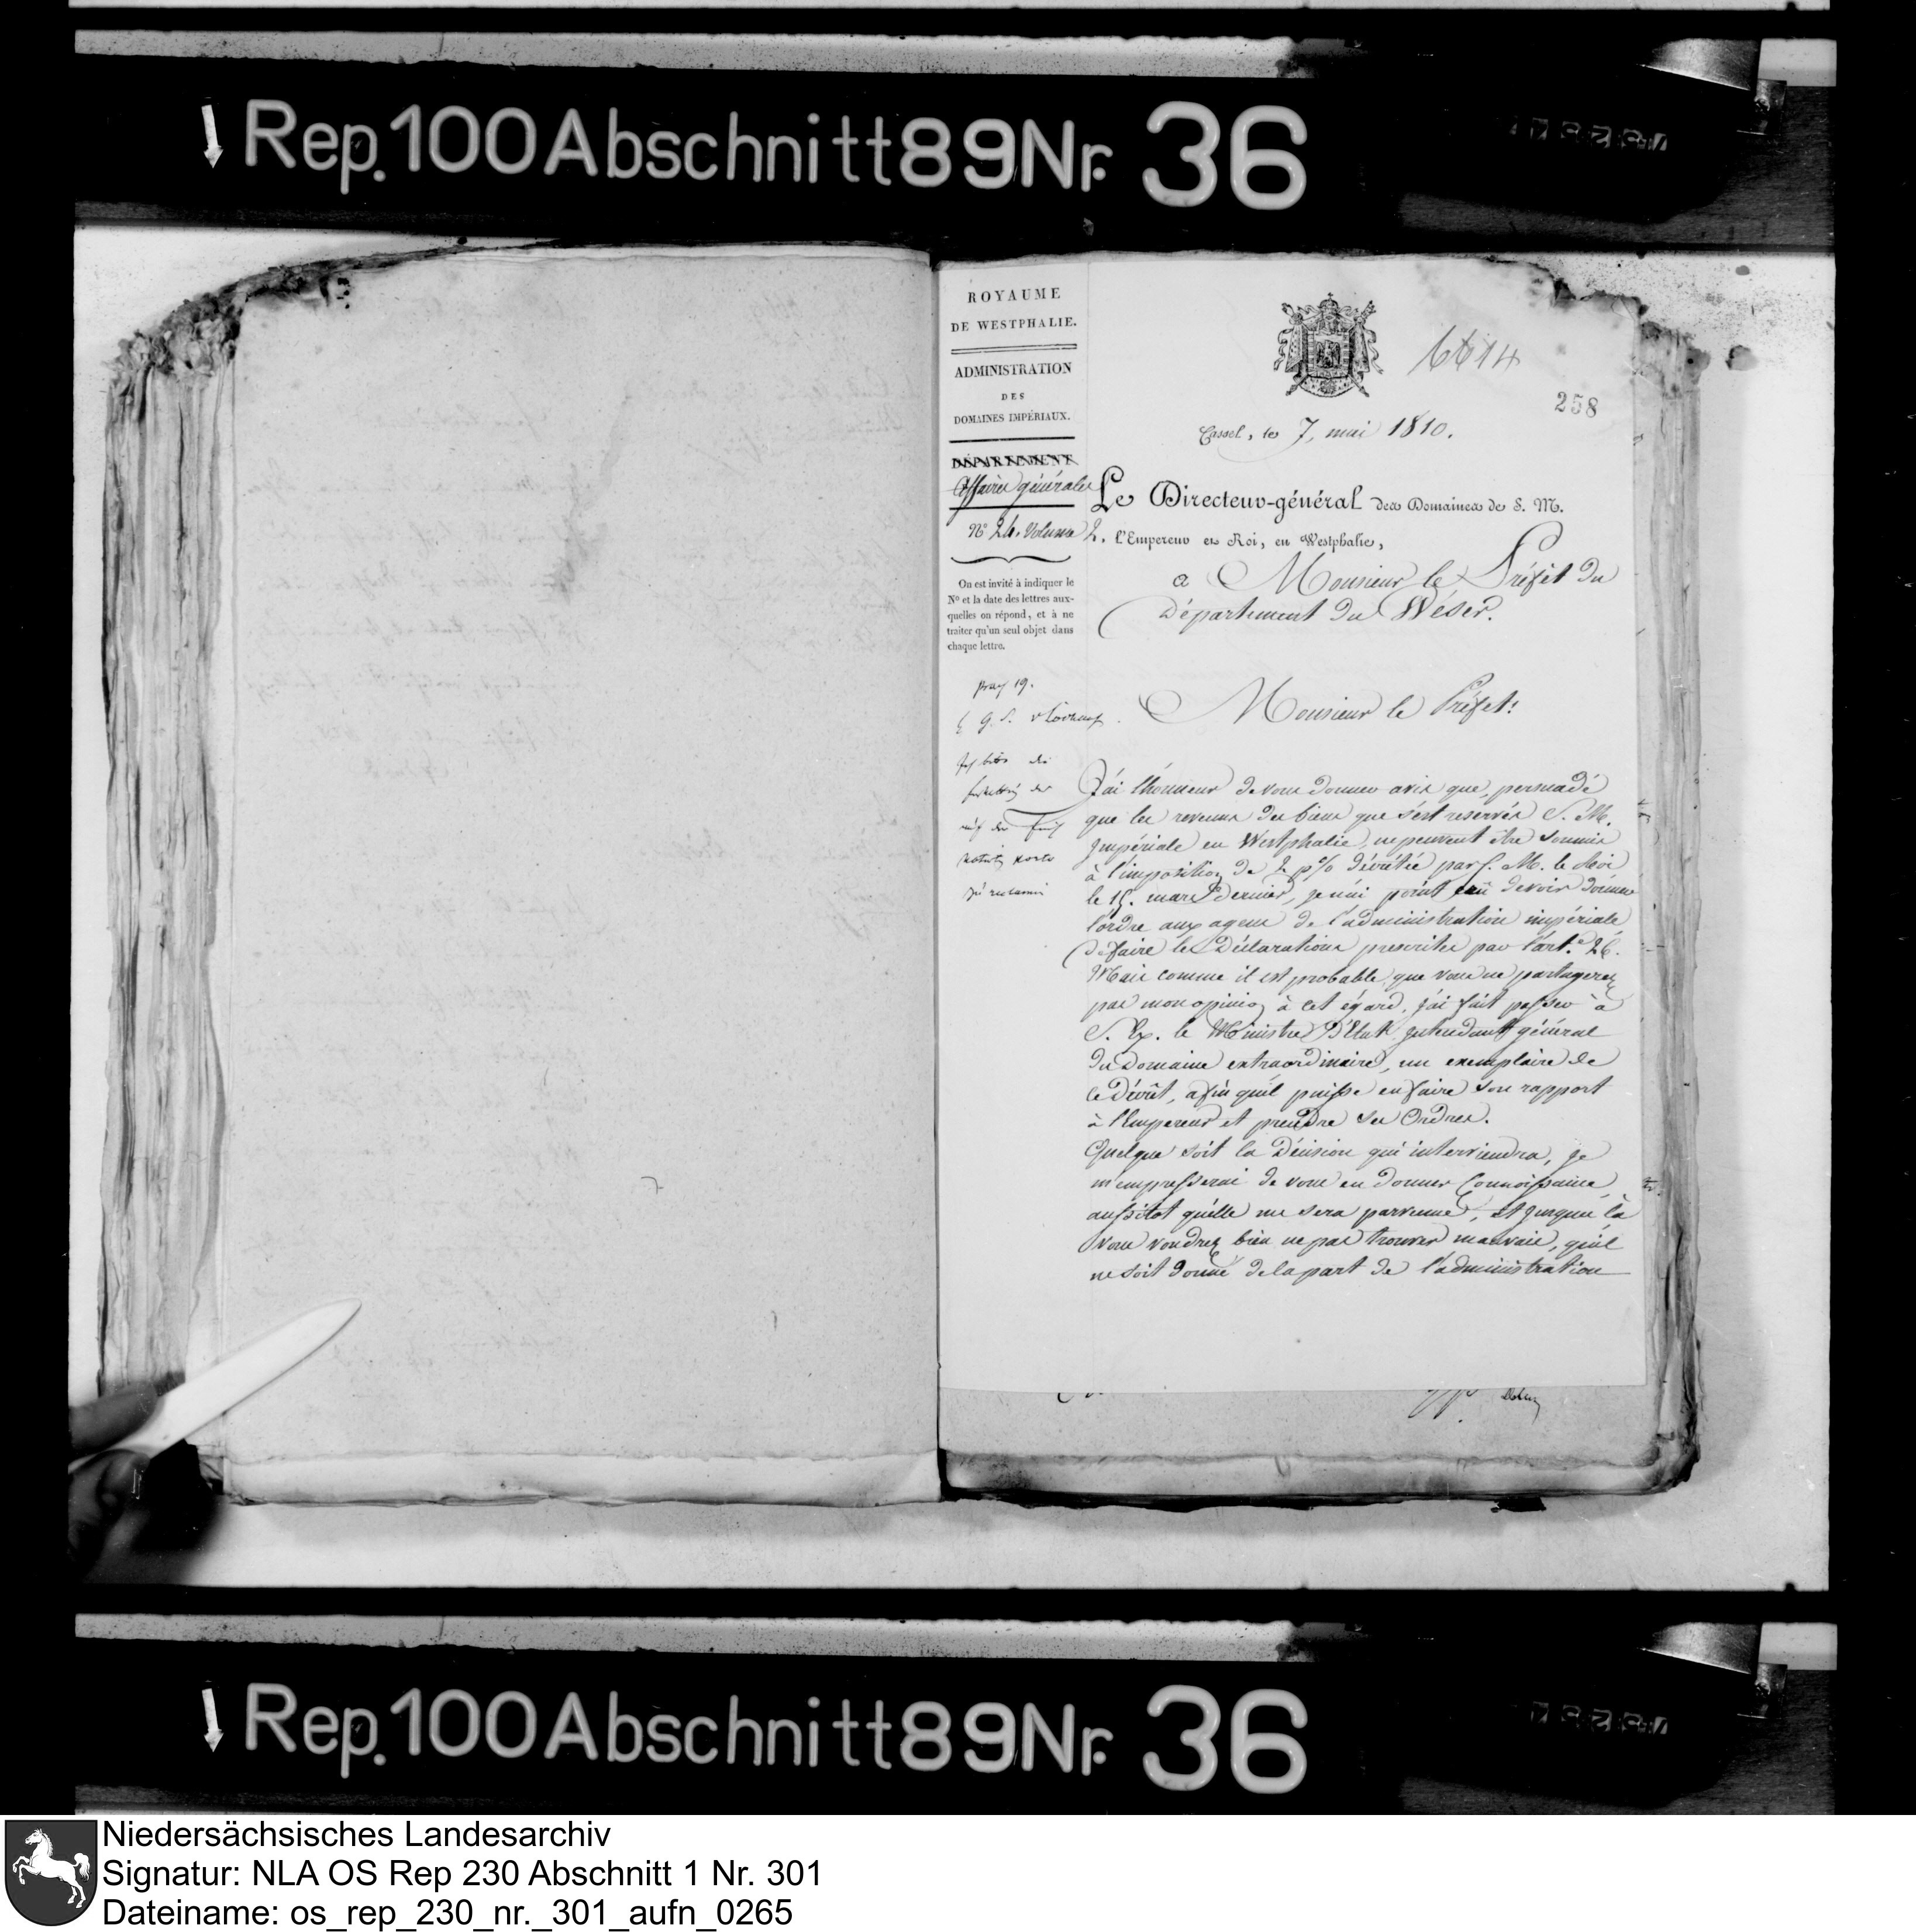 Rep. 100 Abschnitt 89 Nr. 36
ROYAUME
DE WESTPHALIE.
ADMINISTRATION
DES
DOMAINES IMPÉRIAUX.
DÉPARTEMENT
Affaires générales
N° 24. Volume 2.
On est invité à indiquer le
N° et la date des lettres aux-
quelles on répond, et à ne
traiter qu'un seul objet dans
chaque lettre.
6614
258
Cassel, le 7, mai 1810.
Le Directeur-général des Domaines de S. M.
l'Empereur et Roi, en Westphalie,
a Monsieur le Préfet du
Département du Wéser.
Monsieur le Préfet!
J'ai l'honneur de vous donner avis que, persuadé
que les revenus des biens que s'est reservés S. M.
Impériale en Westphalie, ne peuvent être soumis
à l'imposition de 2 p% décrétée par S. M. le Roi
le 15. mars dernier, je n'ai point crû devoir donner
l'ordre aux agens de l'administration impériale
de faire les Déclarations prescrites par l'art.e 26.
Mais comme il est probable que vous ne partagerez
pas mon opinion à cet égard, j'ai fait passer à
S. Ex. le Ministre D'Etat Intendant général
du Domaine extraordinaire, un exemplaire de
ce Décrêt, afin quil puisse en faire son rapport
à l'Empereur et prendre ses Ordres.
Quelque soit la Décision qui interviendra, je
m'empresserai de vous en donner Connoissance,
aussitot qu'elle me sera parvenue, et jusques là
vous voudrez bien ne pas trouver mauvais, qu'il
ne soit donné de la part de l'administration
Rep. 100 Abschnitt 89 Nr. 36
Niedersächsisches Landesarchiv
Signatur: NLA OS Rep 230 Abschnitt 1 Nr. 301
Dateiname: os_rep_230_nr._301_aufn_0265